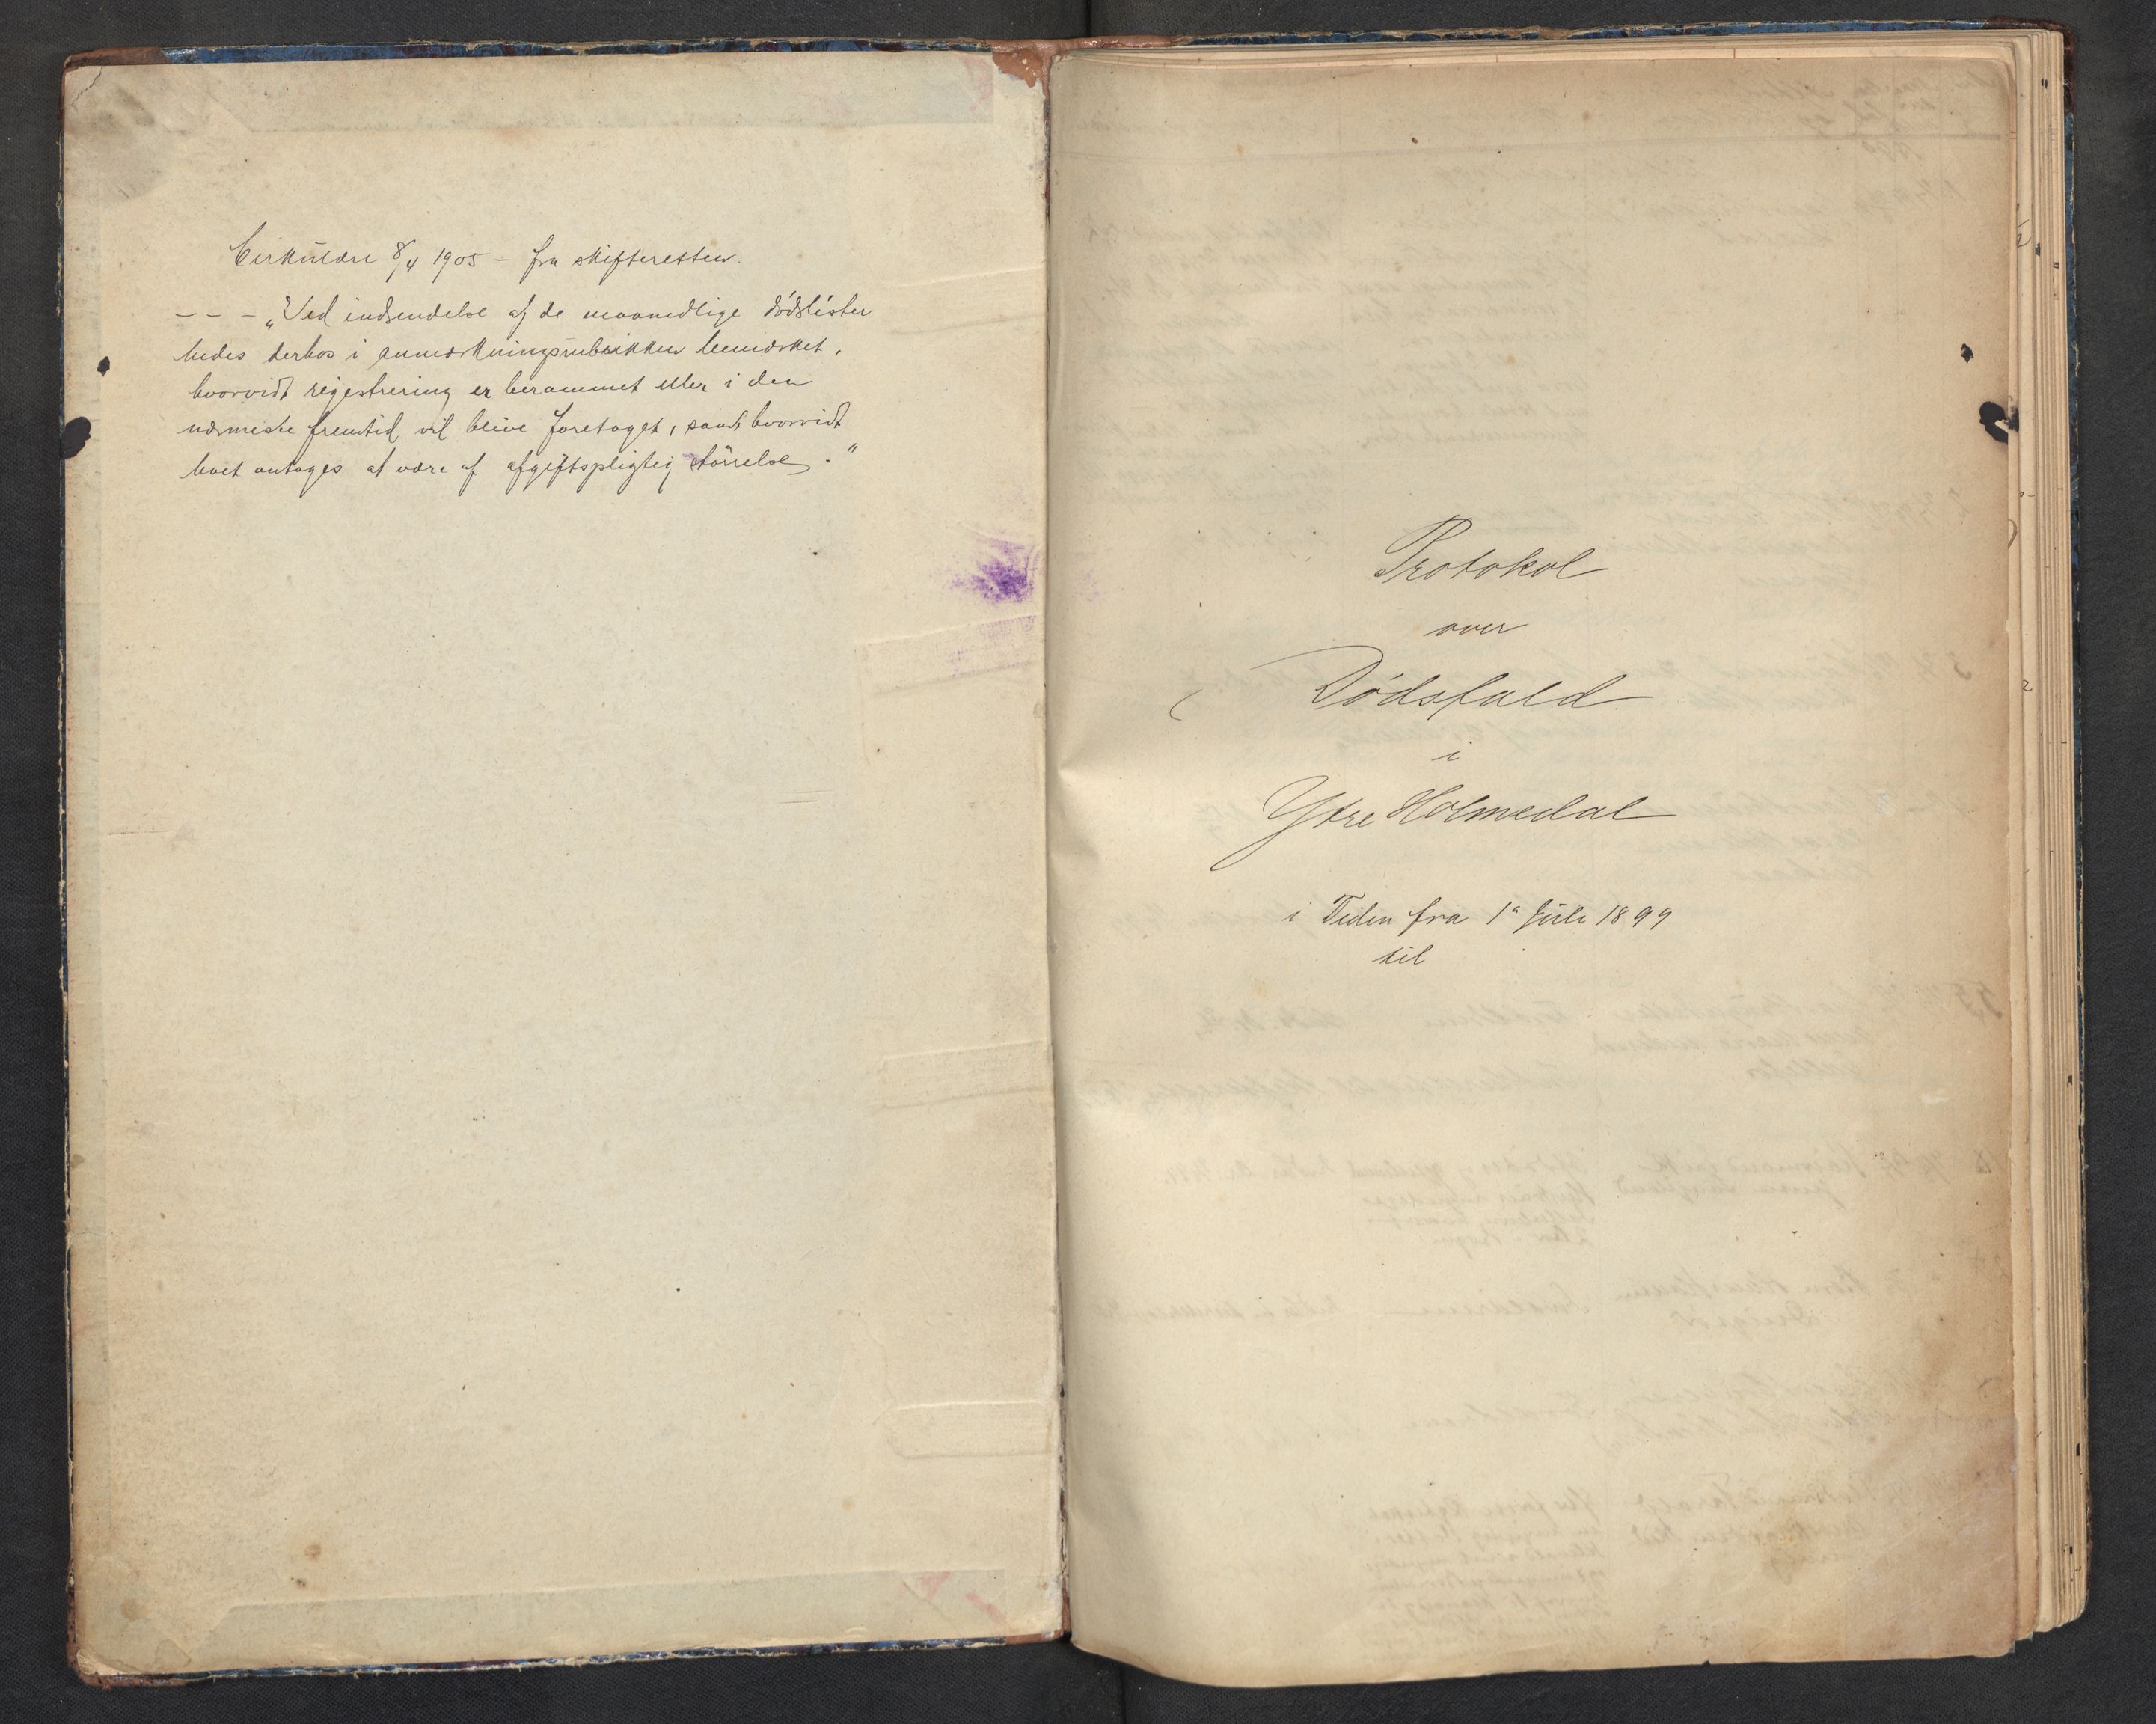 Cirkulære 8/4 1905 – fra skifteretten.
– – – „Ved indsendelse af de maanedlige dødslister
bedes derhos i anmærkningsrubrikken bemærket,
hvorvidt registrering er berammet eller i den
nærmeste fremtid vil blive foretaget, samt hvorvidt
boet antages at være af afgiftspligtig størrelse."
Protokol
over
Dödsfald
i
Ytre Holmedal
i Tiden fra 1ª Juli 1899
til